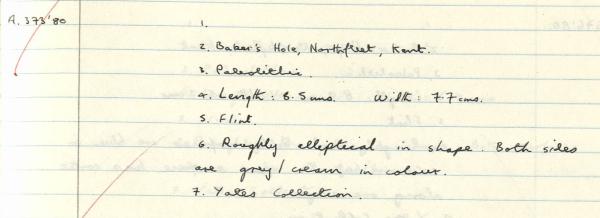 A. 373'80
1.
2. Baker's Hole, Northfleet, Kent.
3. Paleolithic.
4. Length: 8.5cms. Width: 7.7cms.
5. Flint.
6. Roughly elliptical in shape. Both sides
are grey/cream in colour.
7. Yates Collection.